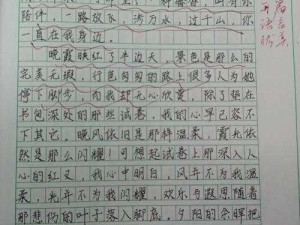 陪伴，一路放飞，涉万水，过千山，你
一直在我身边。
晚霞映红了半边天，景色是那么的
完美无瑕，行色匆匆的路上很多人为她
停下脚步，而我却无心欣赏，除了垫在
书包深处的那些试卷，我的心早已容不
下其它。晚风依旧是那样温柔，霞光依
然是那么闪耀，可想起试卷上那深入人
心的红叉，我心中明白，风并不为我温
柔，光并不为我闪耀，欢乐与遐思随着
那悲伤的叶子落入脚底，夕阳的余晖把